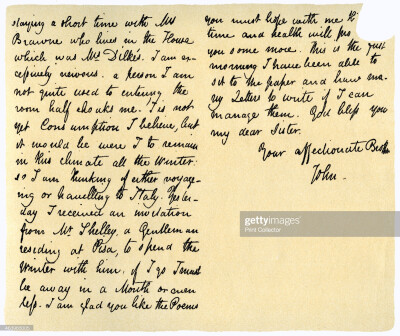 staying a short time with Mrs
Brawne who lives in the House
which was Mrs Dilke's. I am ex-
cessively nervous. a person I am
not quite used to entering the
room half choaks me. T'is not
yet Consumption I believe, but
it would be were I to remain
in this climate all the Winter:
so I am thinking of either voyag-
ing or travelling to Italy. Yester-
day I received an invitation
from Mr Shelley, a Gentleman
residing at Pisa, to spend the
Winter with him. if I go I must
be away in a Month or even
less. I am glad you like the Poems
you must hope with me that
time and health will pro
you some more. This is the first
morning I have been able to
sit to the paper and have ma
ny Letters to write if I can
manage them. God bless you
my dear Sister.
Your affectionate Broth
John—
gettyimages
Print Collector